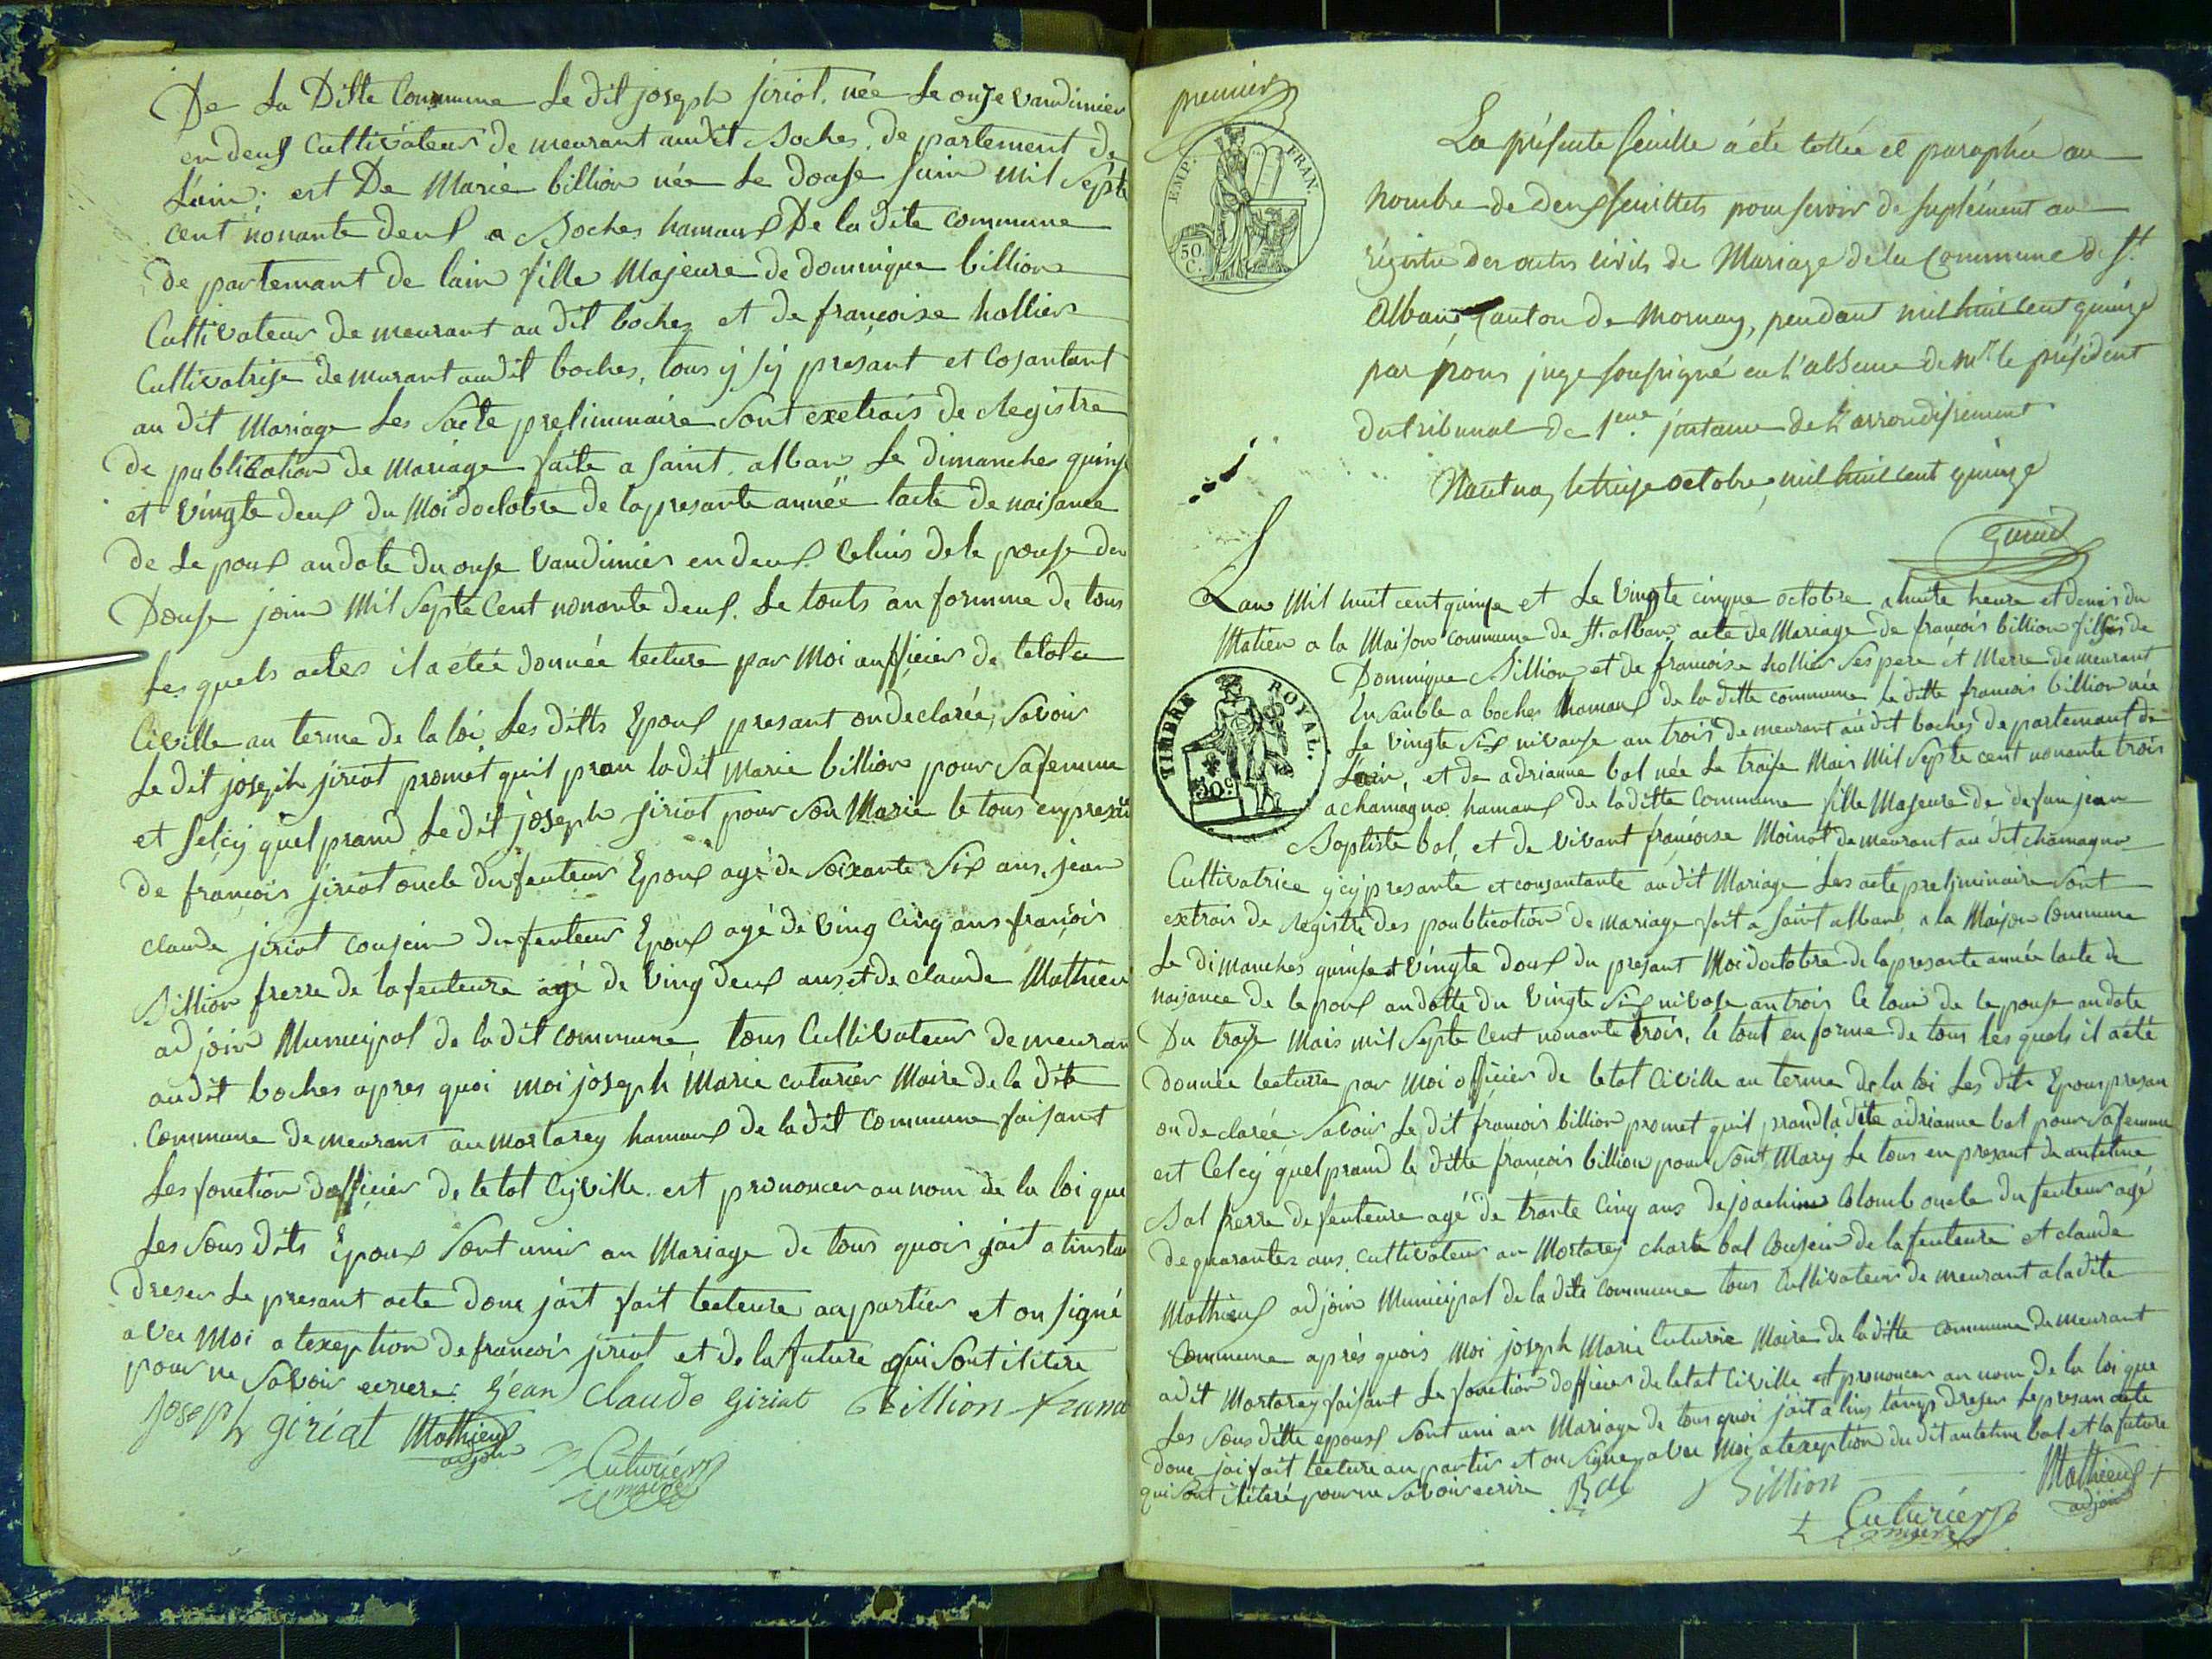 De La Ditte Commune Le dit joseph jiriot. née Le onze vandimier
en deux Cultivateur de meurant audit Boches. de partement de
L'ain: est De Marie billion née Le douse juin mil Septe
cent nonante deux a Boches hamaux De la dite commune
de partemant de lain fille Majeure de dominique billion
Cultivateur de meurant au dit boches et de françoise hollier
Cultivatrise demurant audit boches, tous y sy presant et Cosantant
au dit Mariage Les Sacte preliminaire Sont exetrais de Registre
de publication de Mariage faite a saint alban Le dimanches quinse
et vingte deux du Moi doctobre de la presante année lacte de naisance
de Le poux andate du onse Vandimier en deux. Celuis dele pouse du
Douse join Mil Septe Cent nonante deux. Le touts an formme de tous
Les quels actes il a etée donnée lecture par Moi aufficier de letat a
Civille au terme de la loi Les ditts Epoux presant on declarée, Savoir
Le dit joseph jiriot promet quil pran la dit Marie billion pour Safemme
et Selcy quel prand Le dit joseph jiriot pour Son Marie le tous enpresan
de françois jiriot oncle dufeuteur Epoux agé de Soixante Six ans, jean
claude jiriot cousin dufeuteur Epoux agé de Ving Cinq ans françois
Billion frerre de lafeuteure agé de Ving deux ans et de claude Mathieu
adjoin Municipal de la dit commune tous Cultivateur de meuran
audit boches apres quoi moi joseph Marie cuturier Maire de la dite
Commune de meurant au mortarey hamaux de la dit Commune faisant
Les fonction dofficier de letat Cyville. est prononcer au nom de la loi que
Les Sous dits Epoux Sont unir an Mariage de tous quois jait a linstan
dreser Le presant acte donc jait fait lecteure auxpartier et on signé
avec Moi a lexeption de francoir jiriot et de la future qui sont ilitere
pour ne Savoir ecrire. Géan Claude Giriat Billion frans
Joseph giriat Mathieux
adjoin
Cuturier
maire
premier
EMP. FRAN.
50
C.
La présente feuille a été cottée et paraphée au
nombre de deux feuillets pour servir de suplément au
régistre des actes civils de Mariage de la Commune de St
alban Canton de Mornay, pendant mil huit cent quinze
par nous juge soussigné en l'absence de Mr le président
du tribunal de 1ere instance de l'arrondissement
Nantua, le treize octobre, mil huit cent quinze
Lan Mil huit cent quinse et Le Vingte cinque octobre a huite heure et demis du
Matien a la Maison commune de St. alban acte de Mariage de francois billion fills de
Dominique Billion et de francoise hollier Ses pere et Merre demeurant
En Sanble a boches hamaux de la ditte commune Le ditte francois billion née
Le vingte Six nivause an trois demeurant au dit boches departemant de
Lain, et de adrianne bal née Le traise Mais Mil Septe cent nonante trois
a chamagna hamaux de la ditte Commune fille Majeure de defun jean
TIMBRE ROYAL.
50c
Baptiste bal, et de vivant françoise Moinat demeurant au dit chamagna
Cultivatrice y cy presante et consantante au dit Mariage Les acte preliminaire Sont
extrais de Registre des poublication de Mariage fait a Saint alban a la Maison Commune
Le dimanches quinse et vingte doux du presant Moi doctobre de la presante année lacte de
naisance de le poux andatte du Vingte Six nivose an trois Celoui de le pouse andate
Du traise Mais mil Septe Cent nonante trois, le tout en forme de tous les quels il a eté
donnée lecturre par Moi officier de letat Civille au terme de la loi Les dits Epoux presan
on declarée. Savoir Le dit françois billion promet quil prand la dite adrianne bal pour Safemme
est Celcy quel prand le ditte françois billion pour Sont Mary Le tous en presant de antelme
Bal frerre defeuteure agé de trante Cinq ans de joachim Colomb oncle du feuteur agé
de quarantes ans cultivateur au Mortarey charle bal Cousin de la feuteure et claude
Mathieux adjoin Municipal de la dite commune tous Cultivateur de meurant a la dite
Commune aprés quois Moi joseph Marie Cuturié Maire de la ditte commune demeurant
adit Mortarey faisant Le fonction dofficier de letat Civille est prononcer au nom de la loi que
Les Sous ditte epoux Sont uni an Mariage de tous quoi jait a lins tamps dreser le presan acte
donc jai fait lecture au partir et on Signe avec Moi a lexeption du dit antelme bal et la future
qui Sont ilitaré pour ne Savoir ecrire Bal Billion Mathieux
adjoin
Cuturier
maire